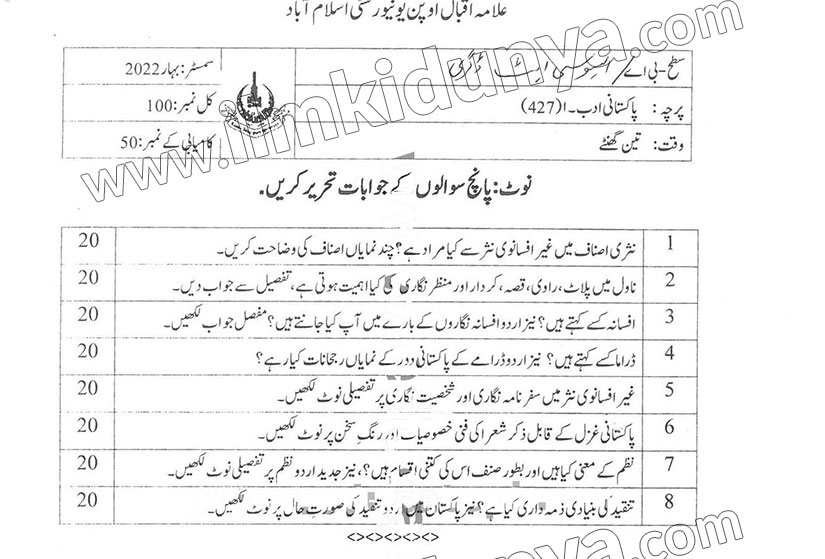 علامہ اقبال اوپن یونیورسٹی اسلام آباد
سطح-بی اے / ایسوسی ایٹ ڈگری
سمسٹر: بہار 2022
پرچہ: پاکستانی ادب-I (427)
کل نمبر: 100
وقت: تین گھنٹے
کامیابی کے نمبر: 50
نوٹ: پانچ سوالوں کے جوابات تحریر کریں۔
1 نثری اصناف میں غیر افسانوی نثر سے کیا مراد ہے؟ چند نمایاں اصناف کی وضاحت کریں۔ 20
2 ناول میں پلاٹ، راوی، قصہ، کردار اور منظر نگاری کی کیا اہمیت ہوتی ہے، تفصیل سے جواب دیں۔ 20
3 افسانہ کسے کہتے ہیں؟ نیز اردو افسانہ نگاروں کے بارے میں آپ کیا جانتے ہیں؟ مفصل جواب لکھیں۔ 20
4 ڈراما کسے کہتے ہیں؟ نیز اردو ڈرامے کے پاکستانی دور کے نمایاں رجحانات کیا رہے؟ 20
5 غیر افسانوی نثر میں سفر نامہ نگاری اور شخصیت نگاری پر تفصیلی نوٹ لکھیں۔ 20
6 پاکستانی غزل کے قابل ذکر شعرا کی فنی خصوصیات اور رنگِ سخن پر نوٹ لکھیں۔ 20
7 نظم کے معنی کیا ہیں اور بطور صنف اس کی کتنی اقسام ہیں؟، نیز جدید اردو نظم پر تفصیلی نوٹ لکھیں۔ 20
8 تنقید کی بنیادی ذمہ داری کیا ہے؟ نیز پاکستان میں اردو تنقید کی صورتِ حال پر نوٹ لکھیں۔ 20
<><><><><>
www.ilmkidunya.com
www.ilmkidunya.com
www.ilmkidunya.com